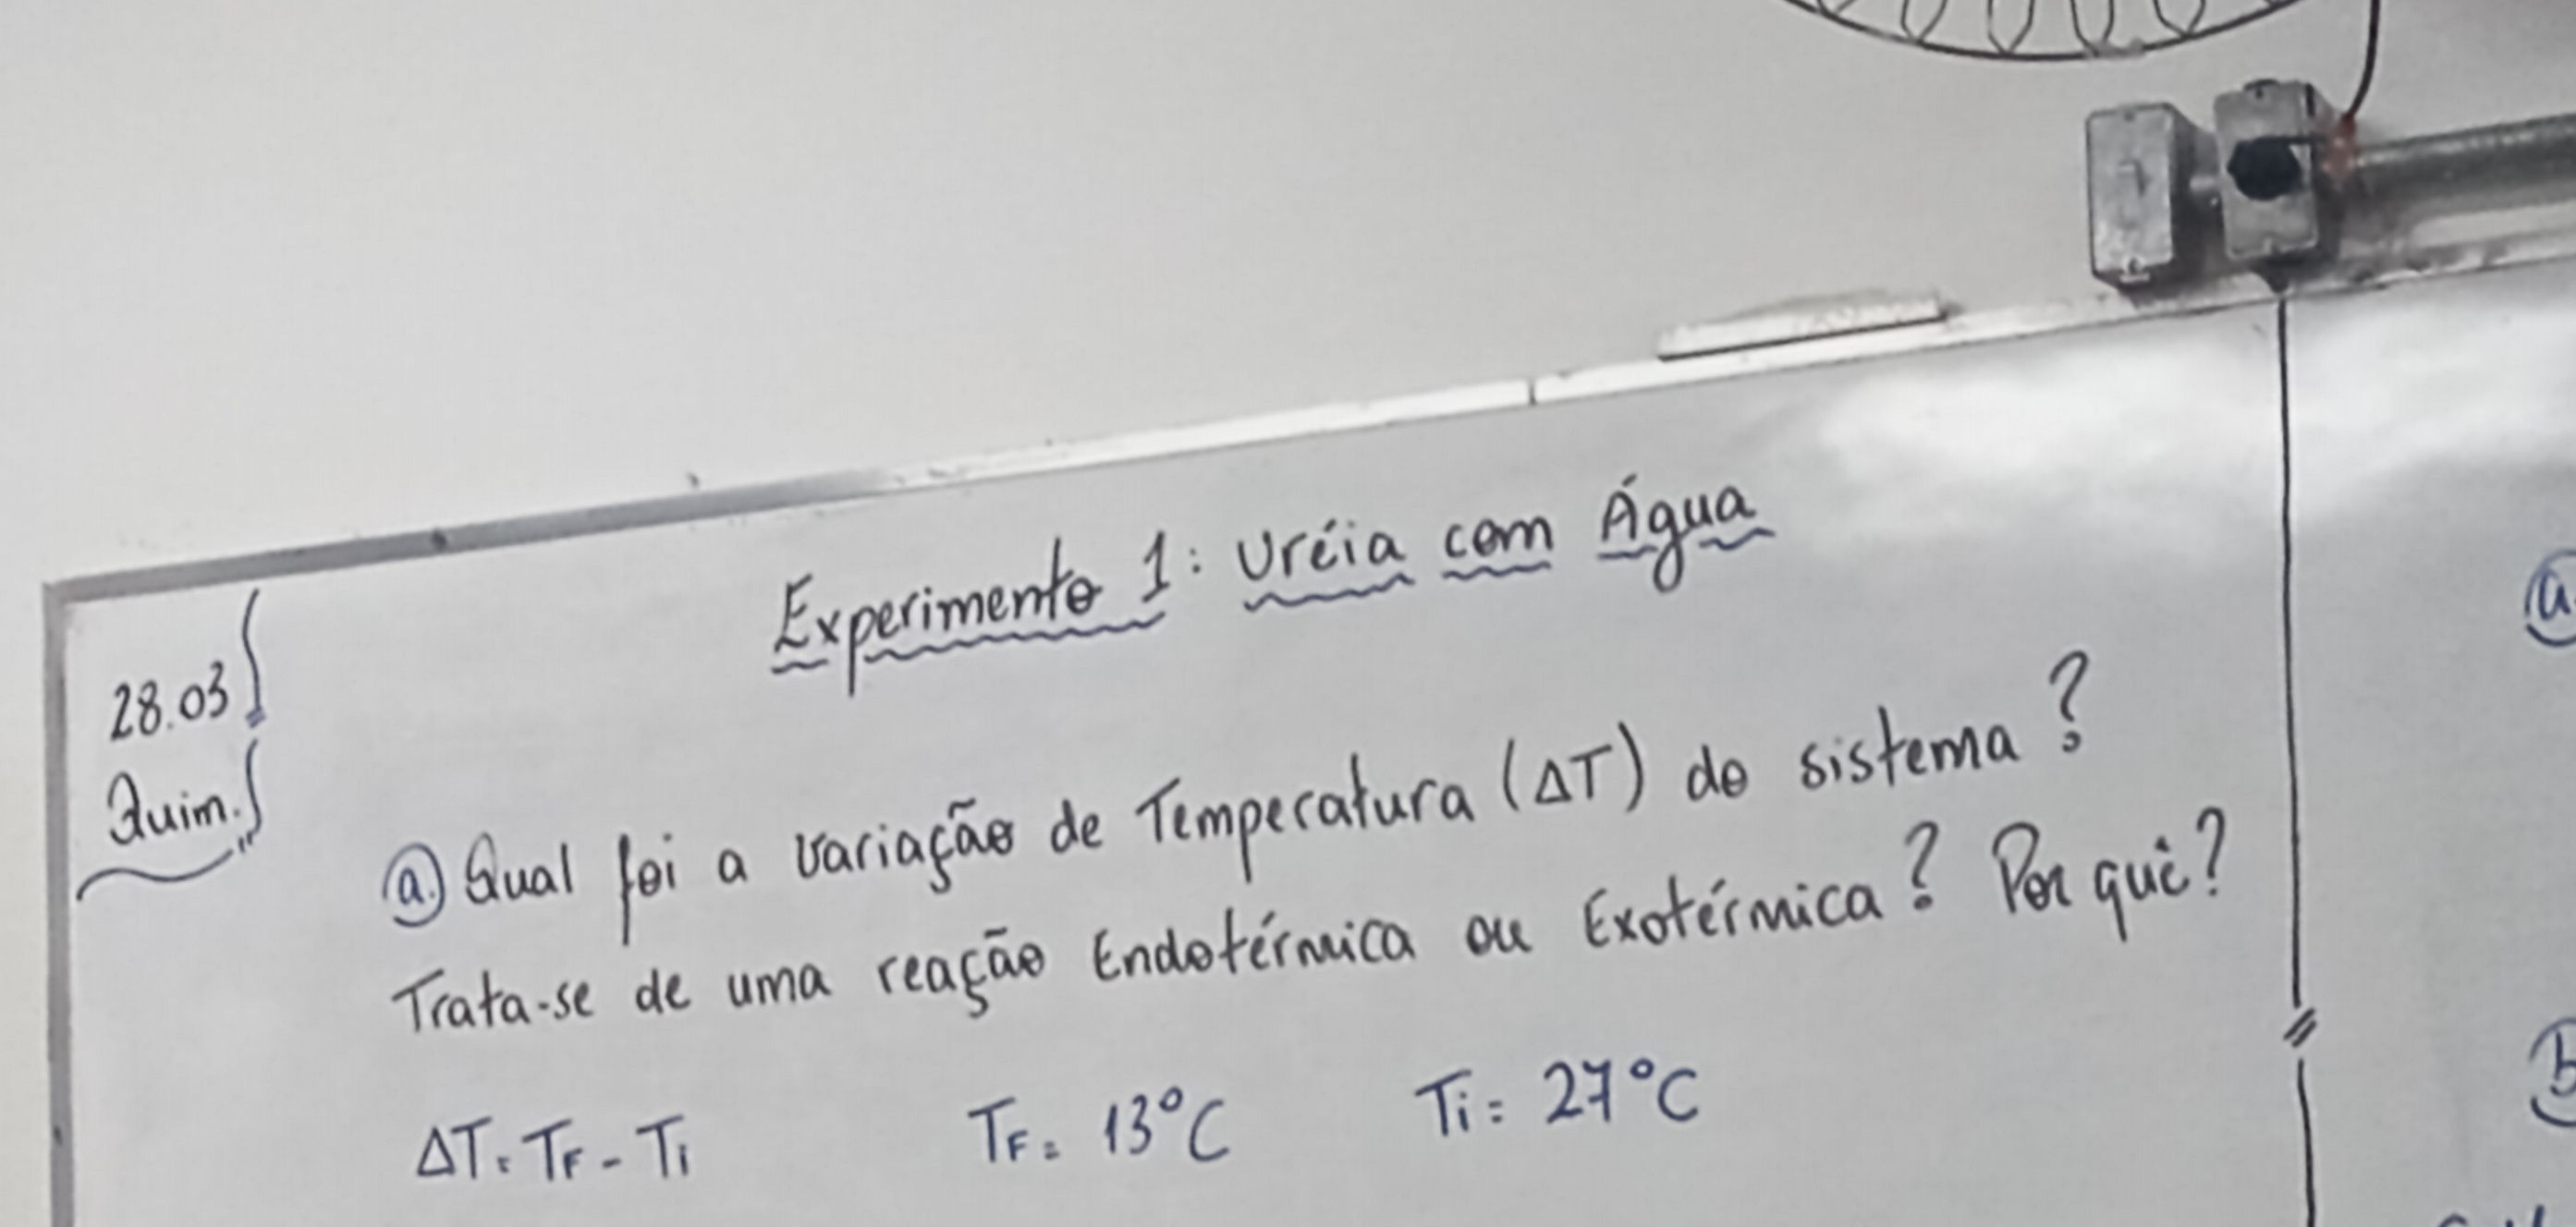 Experimento 1: Uréia com Água
28.03
Quim.
a. Qual foi a variação de Temperatura (ΔT) do sistema?
Trata-se de uma reação Endotérmica ou Exotérmica? Por quê?
ΔT = TF - Ti TF = 13°C Ti = 27°C
a
b